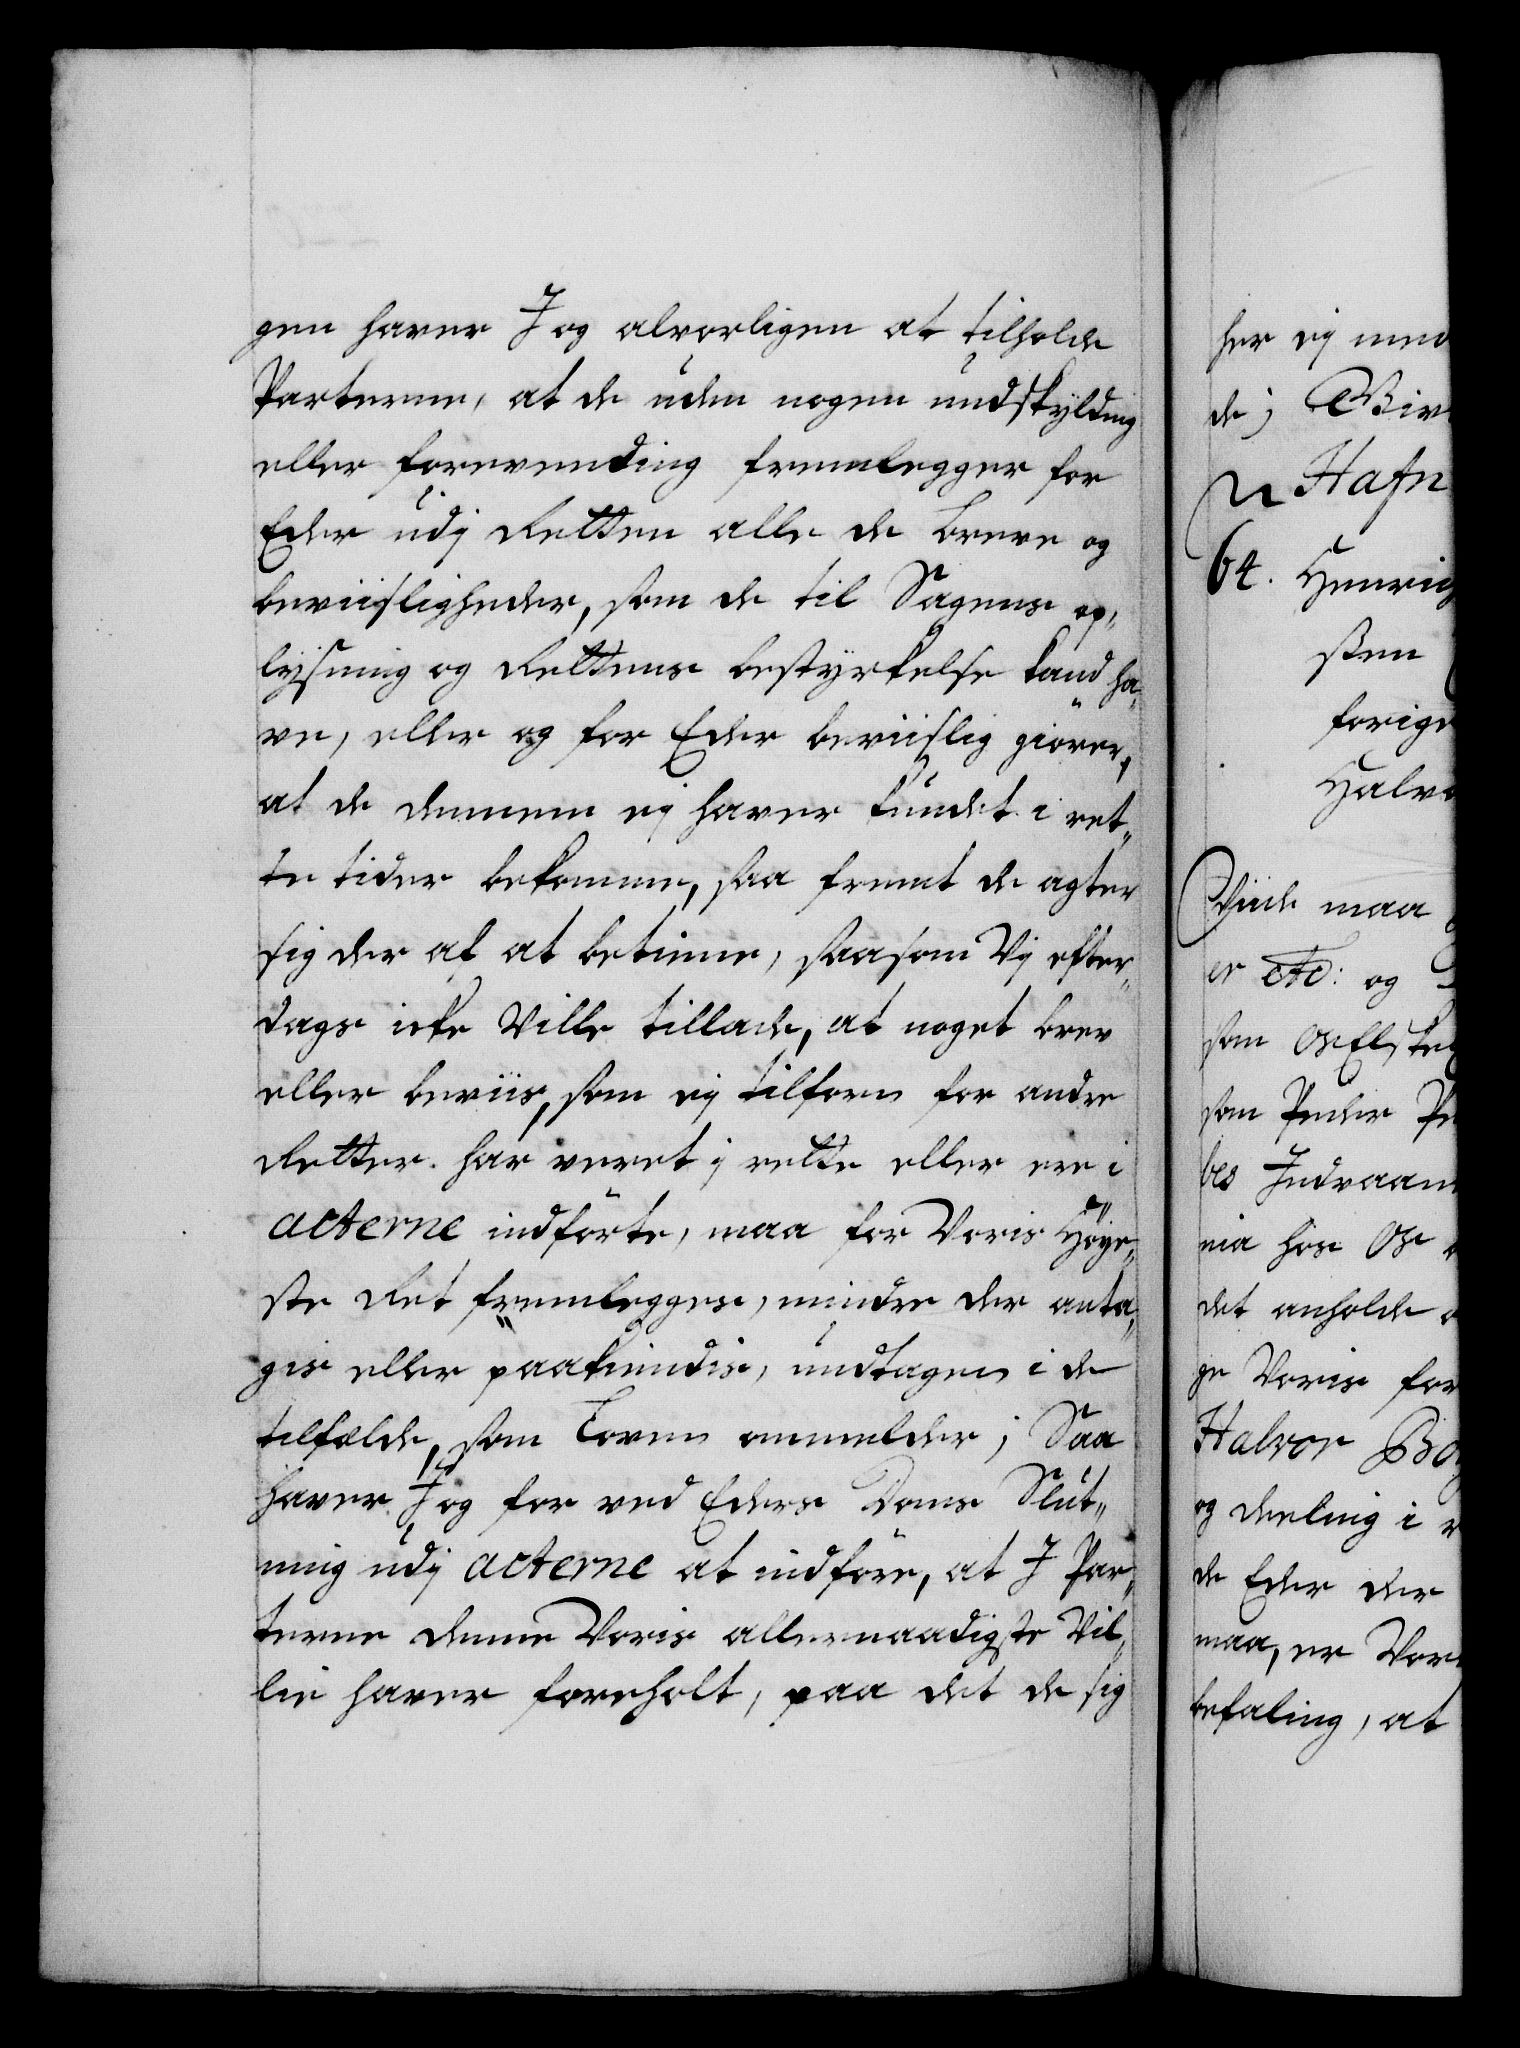 gen haver J og alvorligen at tilholde
Parterne, at de uden nogen undskylding
eller forevending fremlegger for
Eder udj Retten alle de breve og
beviisligheder, som de til Sagens op„
lysning og Rettens bestyrkelse kand ha„
ve, eller og for Eder beviislig giører,
at de dennem ej haver kundet i ret„
te tider bekomme, saa fremt de agter
sig der af at betiene, saasom Vj efter„
dags icke Ville tillade, at noget brev
eller beviis, som ej tilforn for andre
Retter har veret j rette eller ere i
acterne indførte, maa for Voris Høye„
ste Ret fremlegges, mindre der anta„
gis eller paakiendis, undtagen i de
tilfælde, som Loven ommelder; Saa
haver J og for ved Eders Doms Slut„
ning udj acterne at indføre, at J Par„
terne denne Voris allernaadigste Vil„
lie haver foreholt, paa det de sig
her ej
de;
Hafn
64. Henrich
sten
forige
Halvo
Viide maa
er etc: og
som
som Peder
bes Indvaan
nia hos Os
det anholde
ge Voris for
Halvor
og deeling i
de Eder der
maa, er Vor
befaling, at